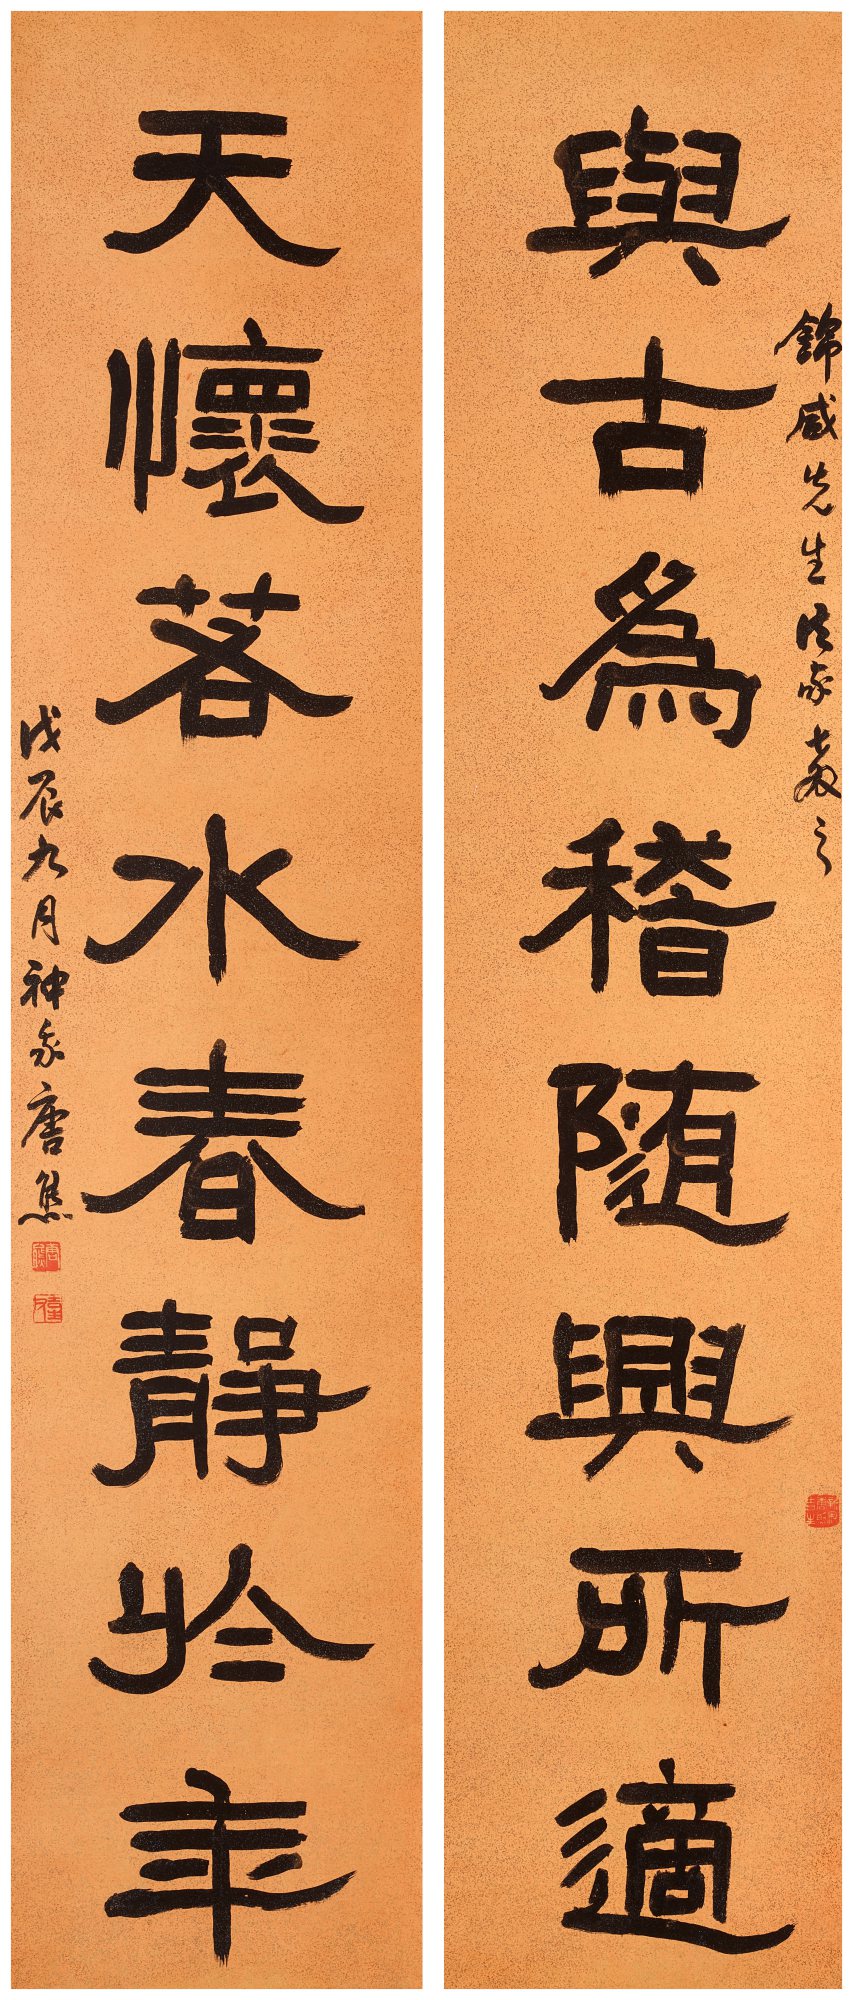 與古為稽隨興所適
錦威先生法家教之
天懷若水春靜於年
戊辰九月神家唐焦